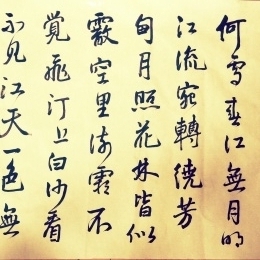 何處春江無月明
江流宛轉繞芳
甸月照花林皆似
霰空里流霜不
覺飛汀上白沙看
不見江天一色無